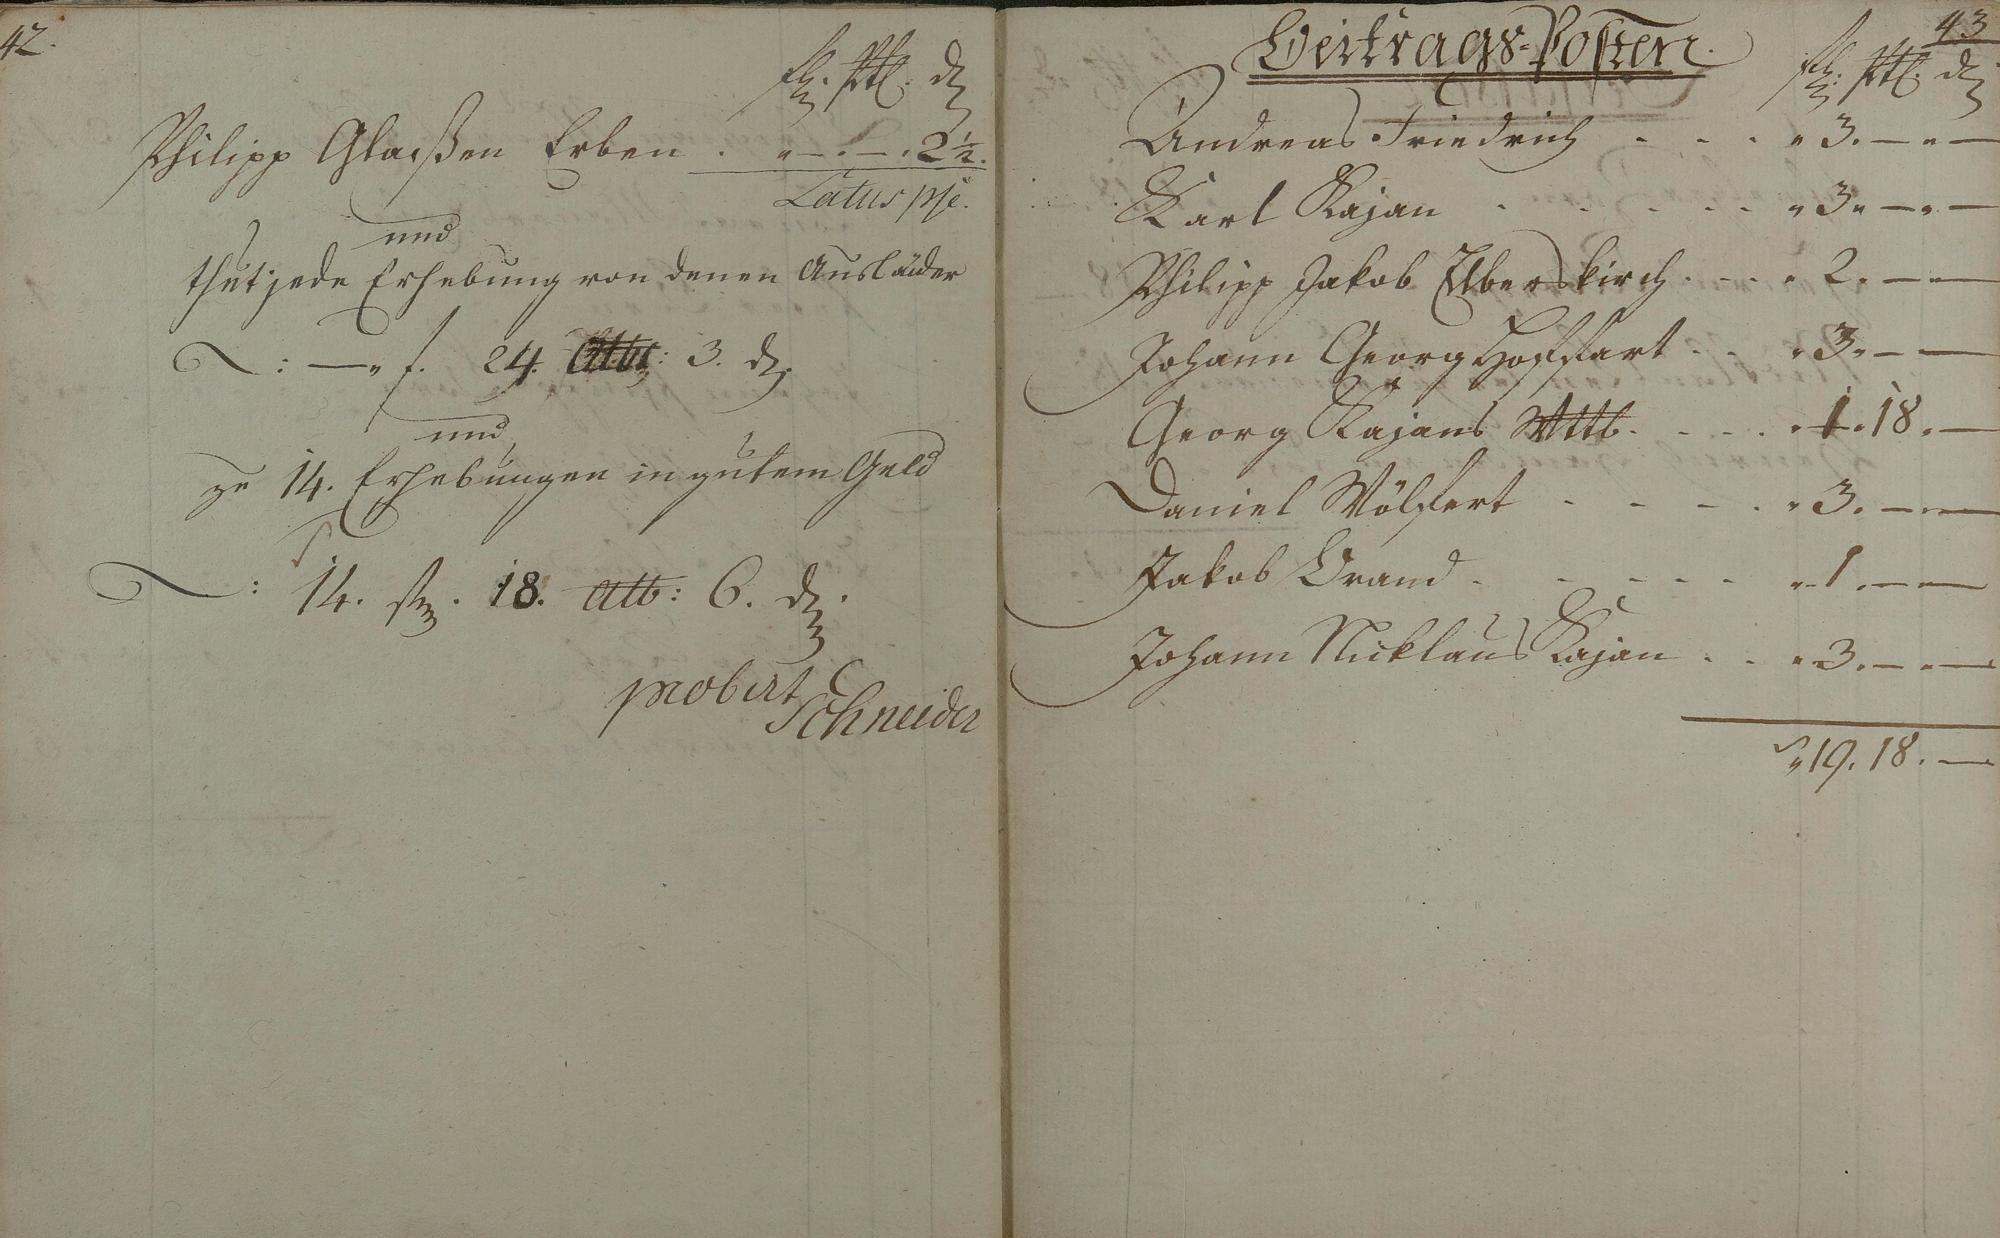 42.
fl. Alb. d.
Philipp Glaeßen Erben . „ — . — . 2½.
Latus p se.
und
thut jede Erhebung von denen Ausländer
: — „ f. 24. Alb: 3. d.
und
zu 14. Erhebungen in gutem Geld
: 14. f. 18. Alb: 6. d.
Schneider
43
Beitrags-Posten.
fl. Alb. d.
Andreas Friedrich . . . „ 3. — „ —
Karl Kajan . . . . . „ 3 „ — „ —
Philipp Jakob Elberskirch . . . „ 2. — —
Johann Georg Hoffart . . „ 3 „ — —
Georg Kajans Wttb. . . . . „ 1. 18. —
Daniel Wölfert . . . . „ 3. — —
Jakob Brand . . . . . „ 1. — —
Johann Nicklaus Kajan . . „ 3. — —
„ 19. 18. —